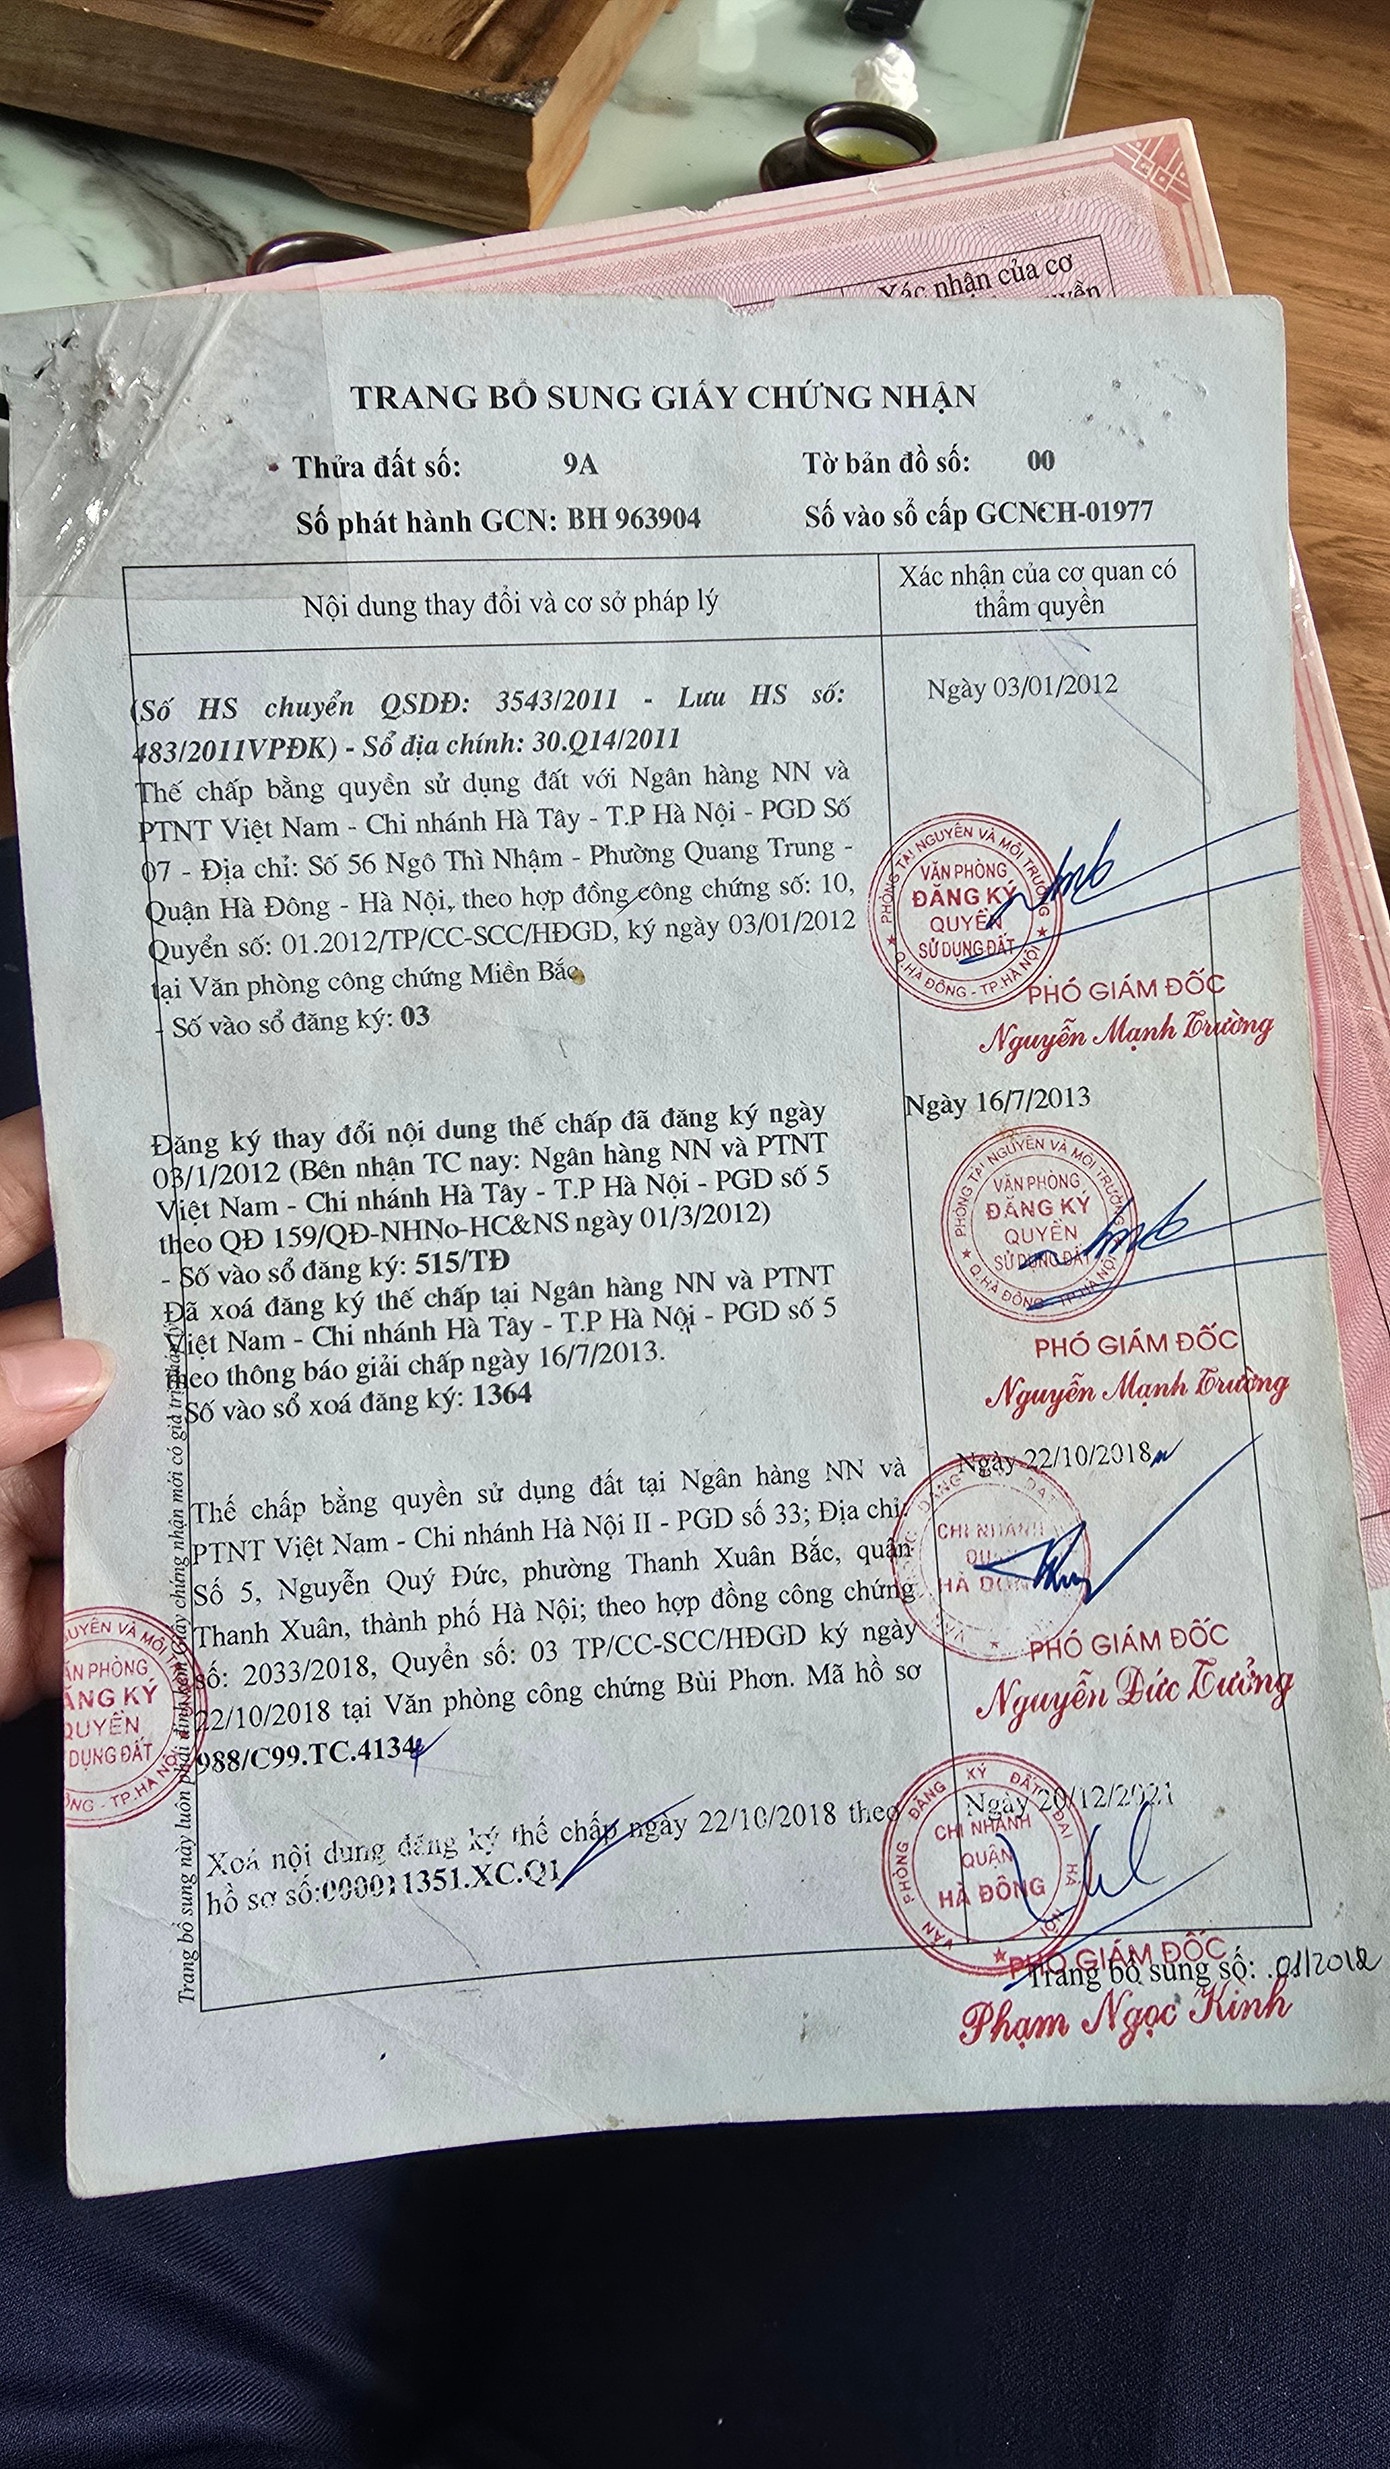 Xác nhận của cơ
TRANG BỔ SUNG GIẤY CHỨNG NHẬN
Thửa đất số: 9A Tờ bản đồ số: 00
Số phát hành GCN: BH 963904 Số vào sổ cấp GCN: CH-01977
Nội dung thay đổi và cơ sở pháp lý
Xác nhận của cơ quan có
thẩm quyền
(Số HS chuyển QSDĐ: 3543/2011 - Lưu HS số:
483/2011VPĐK) - Sổ địa chính: 30.Q14/2011
Thế chấp bằng quyền sử dụng đất với Ngân hàng NN và
PTNT Việt Nam - Chi nhánh Hà Tây - T.P Hà Nội - PGD Số
07 - Địa chỉ: Số 56 Ngô Thì Nhậm - Phường Quang Trung -
Quận Hà Đông - Hà Nội, theo hợp đồng công chứng số: 10,
Quyển số: 01.2012/TP/CC-SCC/HĐGD, ký ngày 03/01/2012
tại Văn phòng công chứng Miền Bắc.
- Số vào sổ đăng ký: 03
Ngày 03/01/2012
PHÒNG TÀI NGUYÊN VÀ MÔI TRƯỜNG
VĂN PHÒNG
ĐĂNG KÝ
QUYỀN
SỬ DỤNG ĐẤT
Q.HÀ ĐÔNG - TP.HÀ NỘI
PHÓ GIÁM ĐỐC
Nguyễn Mạnh Trường
Đăng ký thay đổi nội dung thế chấp đã đăng ký ngày
03/1/2012 (Bên nhận TC nay: Ngân hàng NN và PTNT
Việt Nam - Chi nhánh Hà Tây - T.P Hà Nội - PGD số 5
theo QĐ 159/QĐ-NHNo-HC&NS ngày 01/3/2012)
- Số vào sổ đăng ký: 515/TĐ
Đã xoá đăng ký thế chấp tại Ngân hàng NN và PTNT
Việt Nam - Chi nhánh Hà Tây - T.P Hà Nội - PGD số 5
theo thông báo giải chấp ngày 16/7/2013.
Số vào sổ xoá đăng ký: 1364
Ngày 16/7/2013
PHÒNG TÀI NGUYÊN VÀ MÔI TRƯỜNG
VĂN PHÒNG
ĐĂNG KÝ
QUYỀN
SỬ DỤNG ĐẤT
Q.HÀ ĐÔNG - TP.HÀ NỘI
PHÓ GIÁM ĐỐC
Nguyễn Mạnh Trường
Thế chấp bằng quyền sử dụng đất tại Ngân hàng NN và
PTNT Việt Nam - Chi nhánh Hà Nội II - PGD số 33; Địa chỉ:
Số 5, Nguyễn Quý Đức, phường Thanh Xuân Bắc, quận
Thanh Xuân, thành phố Hà Nội; theo hợp đồng công chứng
số: 2033/2018, Quyển số: 03 TP/CC-SCC/HĐGD ký ngày
22/10/2018 tại Văn phòng công chứng Bùi Phơn. Mã hồ sơ
988/C99.TC.4134
Ngày 22/10/2018
CHI NHÁNH
QUẬN
HÀ ĐÔNG
PHÓ GIÁM ĐỐC
Nguyễn Đức Tưởng
Xoá nội dung đăng ký thế chấp ngày 22/10/2018 theo
hồ sơ số:000011351.XC.Q1
Ngày 20/12/2021
VĂN PHÒNG ĐĂNG KÝ ĐẤT ĐAI HÀ NỘI
CHI NHÁNH
QUẬN
HÀ ĐÔNG
PHÓ GIÁM ĐỐC
Trang bổ sung số: 01/2012
Phạm Ngọc Kinh
VĂN PHÒNG
ĐĂNG KÝ
QUYỀN
DỤNG ĐẤT
Trang bổ sung này luôn phải đính kèm Giấy chứng nhận mới có giá trị pháp lý